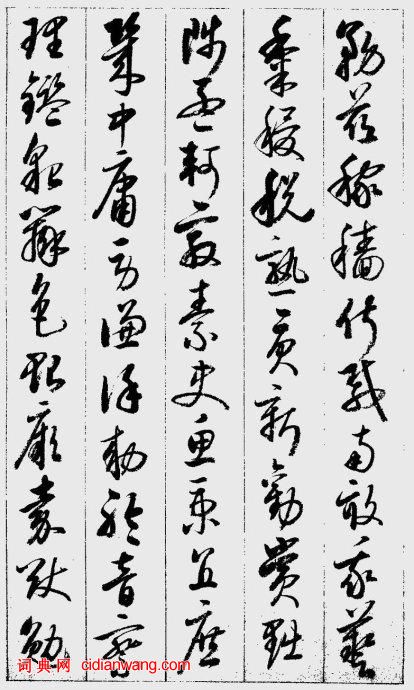 務茲稼穡俶載南畝我藝
黍稷稅熟貢新勸賞黜
陟孟軻敦素史魚秉直庶
幾中庸勞謙謹勅聆音察
理鑑貌辨色貽厥嘉猷勉
词典网 cidianwang.com